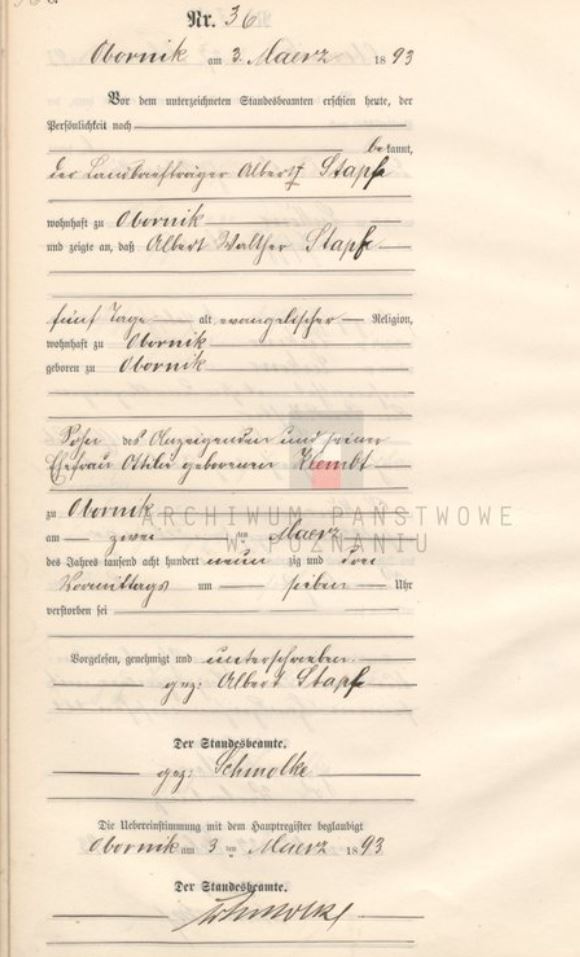 Nr. 36
Obornik am 3. Maerz 1893
Vor dem unterzeichneten Standesbeamten erschien heute, der
Persönlichkeit nach
bekannt,
der Landbriefträger Albert Stapfe
wohnhaft zu Obornik
und zeigte an, daß Albert Walther Stapfe
fünf Tage alt, evangelischer Religion,
wohnhaft zu Obornik
geboren zu Obornik
Sohn des Anzeigenden und seiner
Ehefrau Ottilie geborenen Klembt
zu Obornik
am zwei ten Maerz
des Jahres tausend acht hundert neunzig und drei
Vormittags um sieben Uhr
verstorben sei
Vorgelesen, genehmigt und unterschrieben.
gez: Albert Stapfe
Der Standesbeamte.
gez: Schmolke
Die Uebereinstimmung mit dem Hauptregister beglaubigt
Obornik am 3 ten Maerz 1893
Der Standesbeamte.
Schmolke
ARCHIWUM PAŃSTWOWE
W POZNANIU